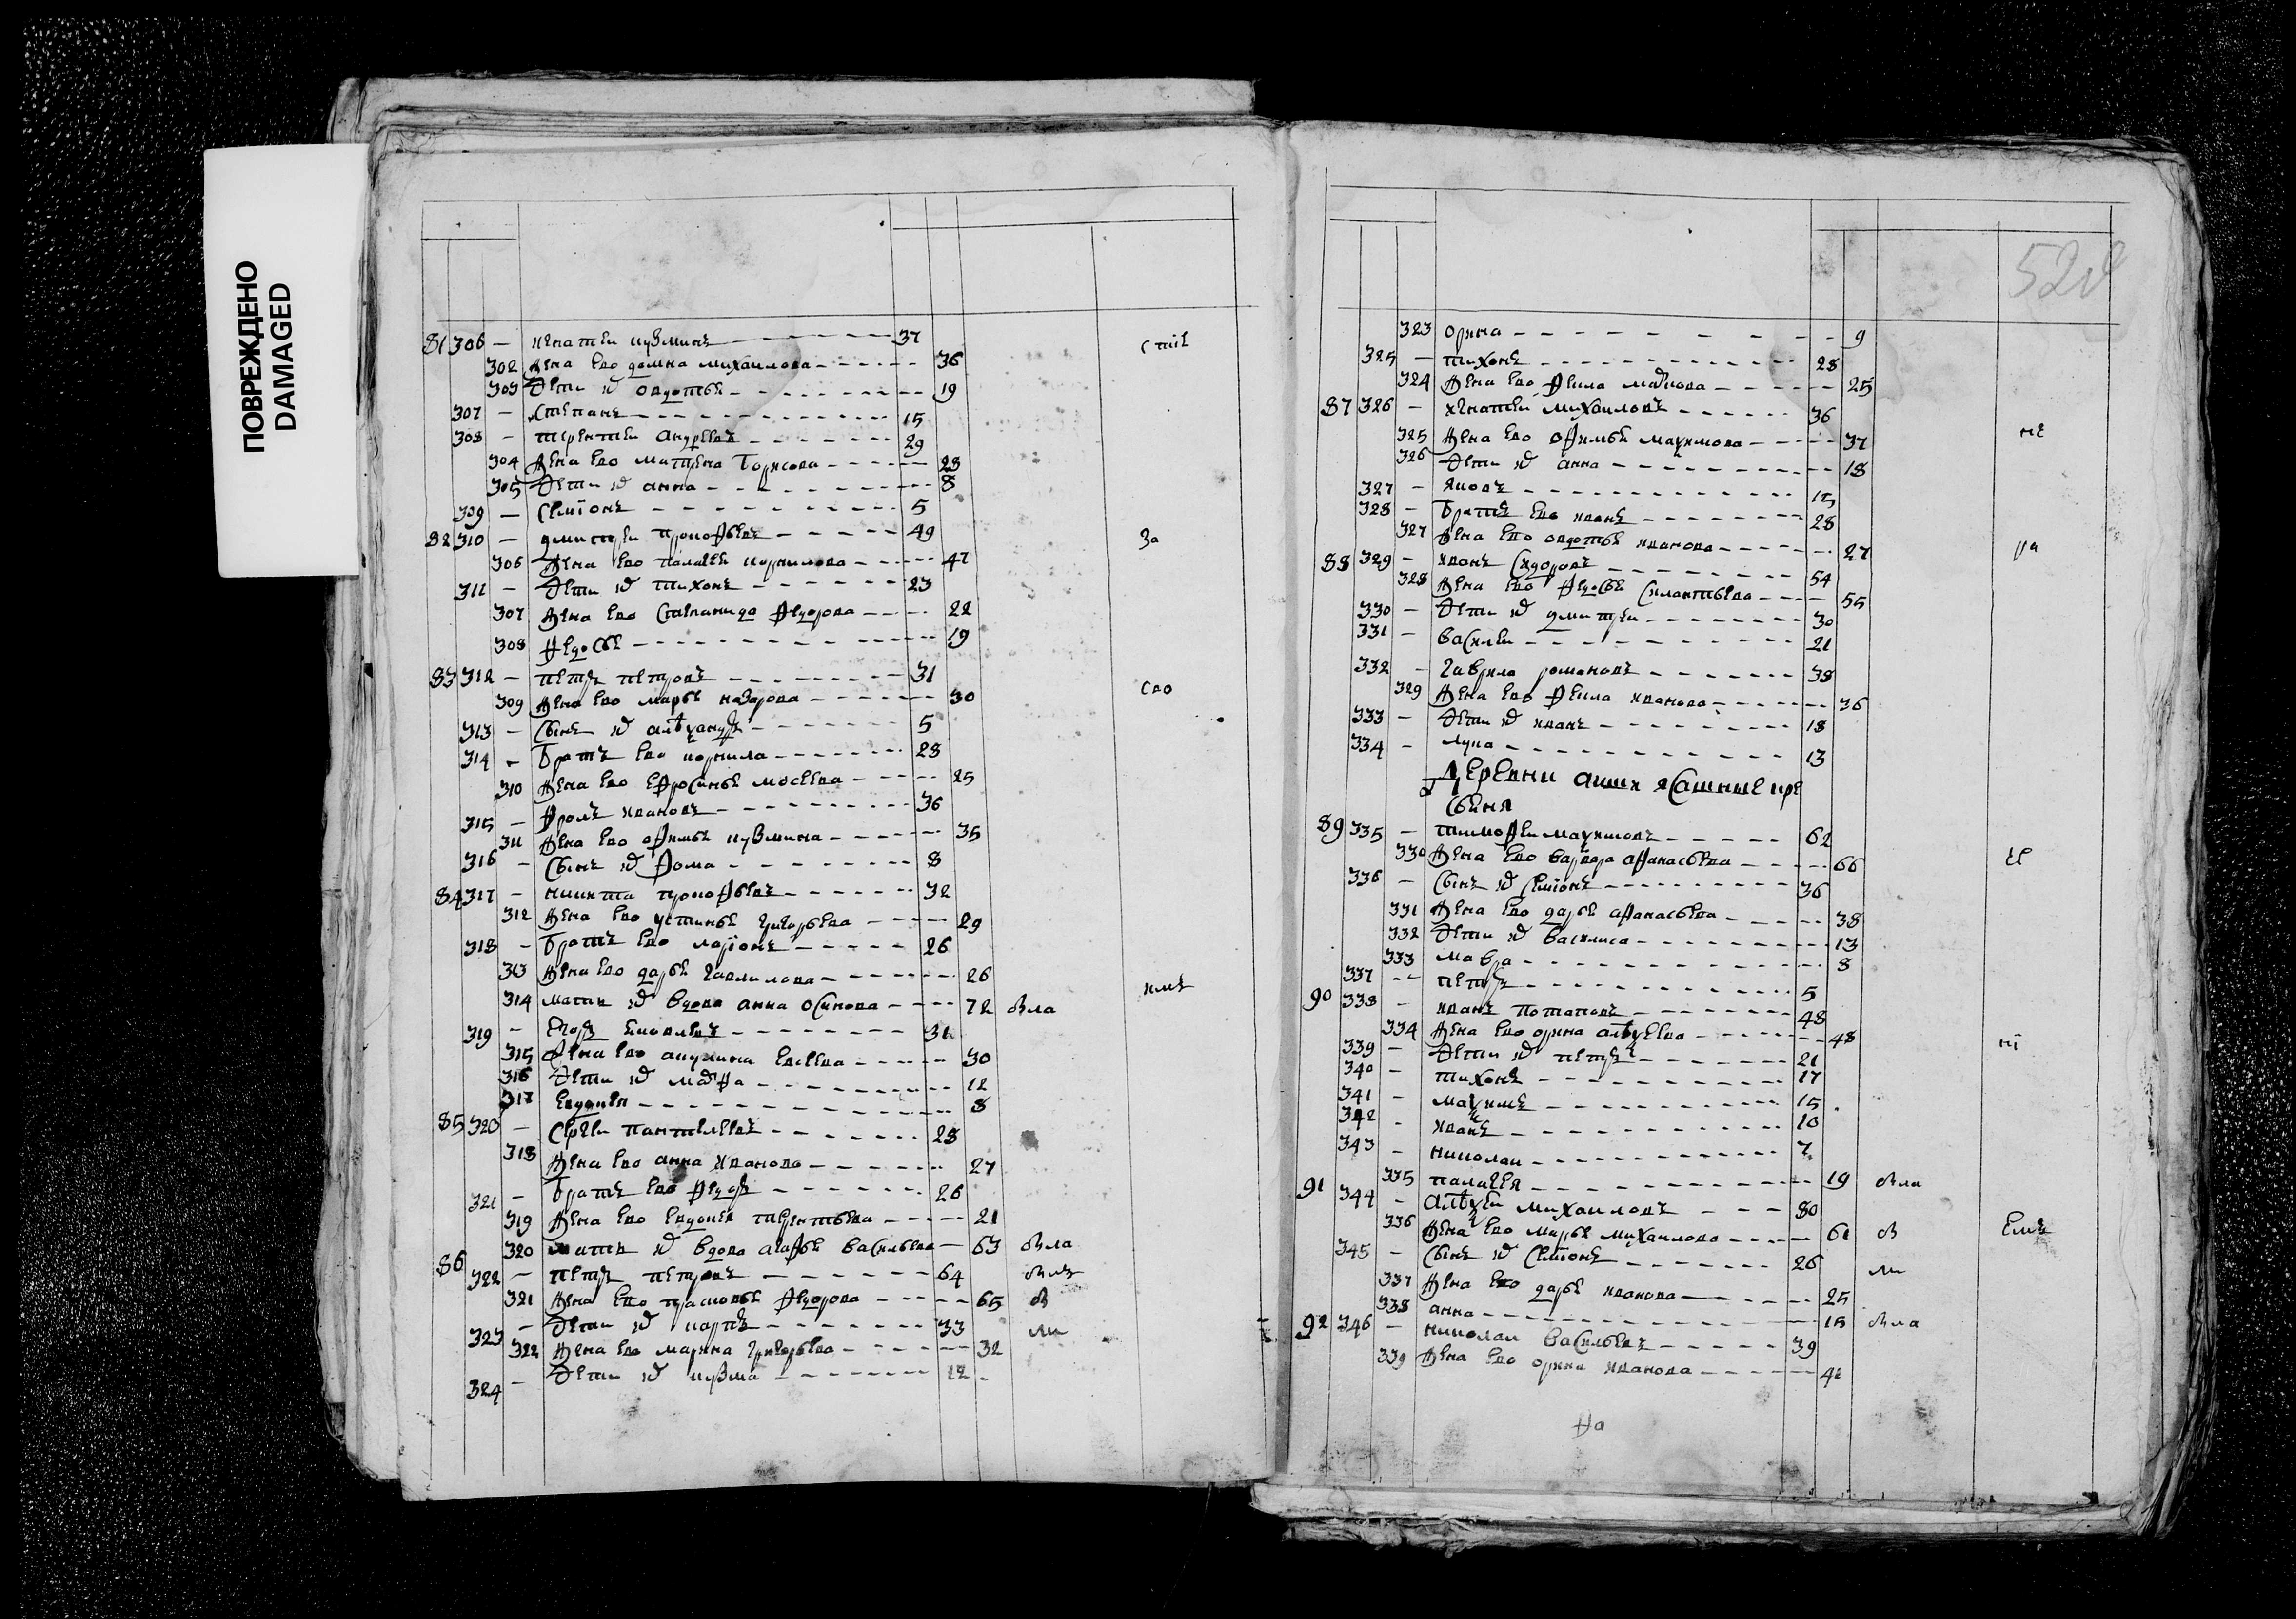 ПОВРЕЖДЕНО
DAMAGED
81 306 — игнатеи кузминъ 37
302 жена ево домна михаилова 36
303 дети их овдотья 19
307 — степанъ 15
308 — терентеи андреевъ 29
304 жена ево матрена борисова 28
305 дети их анна 8
309 — семионъ 5
82 310 — дмитреи прокофьевъ 49
306 жена ево палагея корнилова 47
311 — дети их тихонъ 23
307 жена ево степанида федорова 22
308 федосья 19
83 312 — петръ петровъ 31
309 жена ево марья назарова 30
313 — сынъ их алѣксандръ 5
314 — братъ ево корнила 28
310 жена ево ефросинья мосеева 25
315 — фролъ ивановъ 36
311 жена ево офимья кузмина 35
316 — сынъ их фома 8
84 317 — никита прокофьевъ 32
312 жена ево устинья григорьева 29
318 — братъ ево ларионъ 26
313 жена ево дарья гаврилова 26
314 мати их вдова анна осипова 72
319 — егоръ яковлевъ 31
315 жена ево акулина евсеева 30
316 дети их марфа 12
317 евдокея 8
85 320 — сергеи пантелеевъ 28
318 жена ево анна иванова 27
321 — братъ ево федоръ 26
319 жена ево евдокея терентьева 21
320 мати их вдова агафья васильева — 63
86 322 — петръ петровъ 64
321 жена ево прасковья федорова 65
323 — дети их карпъ 33
322 жена ево марина григорьева 32
324 — дети их кузма 12
528
323 орина 9
325 — тихонъ 28
324 жена ево фекла маркова 25
87 326 — игнатеи михаиловъ 36
325 жена ево офимья максимова 37
326 дети их анна 18
327 — яковъ 15
328 — братъ ево иванъ 28
327 жена ево овдотья иванова 27
88 329 — иванъ сидоровъ 54
328 жена ево федосья силантьева 55
330 — дети их дмитреи 30
331 — василеи 21
332 — гаврила романовъ 38
329 жена ево фекла иванова 36
333 — дети их иванъ 18
334 — лука 13
89 335 — тимофеи максимовъ 62
330 жена ево варвара афанасьева 66
336 — сынъ их семионъ 36
331 жена ево дарья афанасьева 38
332 дети их василиса 13
333 мавра 8
337 — петръ 5
90 338 — иванъ потаповъ 48
334 жена ево орина алѣксеева 48
339 — дети их петръ 21
340 — тихонъ 17
341 — максимъ 15
342 — иванъ 10
343 — николаи 7
335 палагея 19
91 344 — алѣксеи михаиловъ 80
336 жена ево марья михаилова 61
345 — сынъ их семионъ 26
337 жена ево дарья иванова 25
338 анна 15
92 346 — николаи васильевъ 39
339 жена ево орина иванова